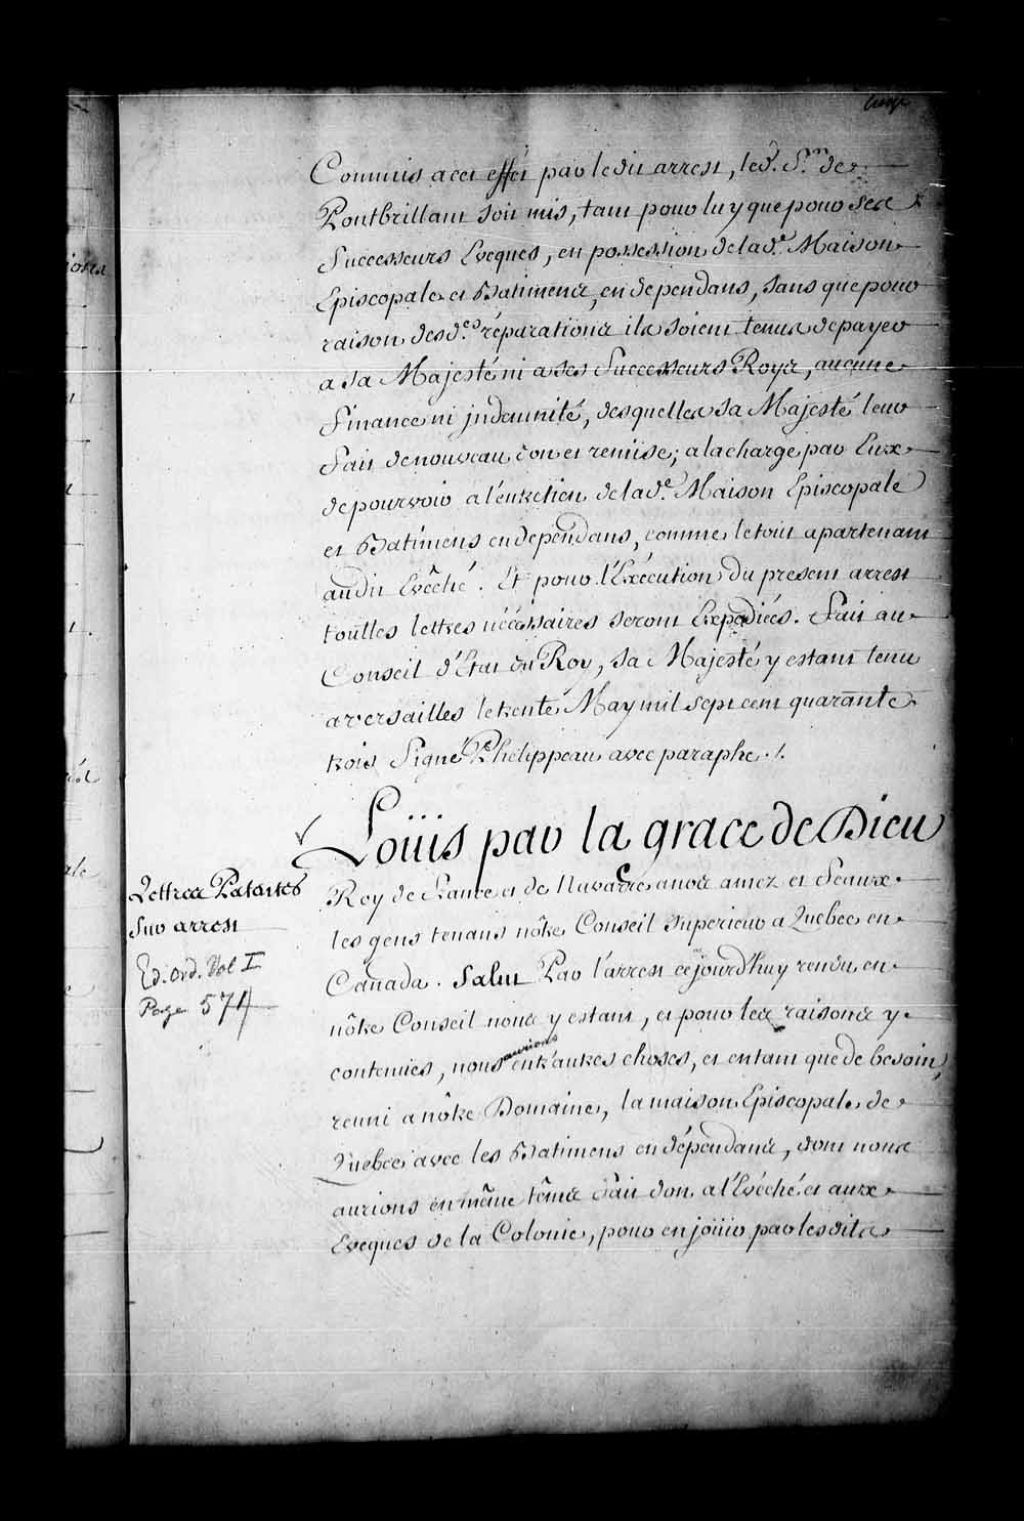 Commis a cet effet par le dit arrest, led. Sr. de
Pontbrillant soit mis, tant pour luy que pour ses
Successeurs Eveques, en possession de lad.e Maison
Episcopale et Batimens, en dependans, sans que pour
raison desd.es réparations ils soient tenus de payer
a sa Majesté ni a ses Successeurs Roys, aucune
finance ni jndemnité, desquelles sa Majesté leur
fait de nouveau don et remise; a la charge par Eux
de pourvoir a l'entretien de lad.e Maison Episcopale
et Batimens en dependans, comme le tout apartenant
audit Evêché. Et pour l'Exécution du present arrest
touttes lettres nécéssaires seront Expediées. Fait au
Conseil d'Etat du Roy, sa Majesté y estant tenu
a versailles le trente May mil sept cent quarante
trois Signé Phelippeau avec paraphe ./.
Loüis par la grace de Dieu
Roy de France et de Navarre a nos amez et feaux
les gens tenans nôtre Conseil Superieur a Quebec en
Canada. Salut Par l'arrest cejourd'huy rendu en
nôtre Conseil nous y estant, et pour les raisons y
contenues, nous aurions entr'autres choses, et entant que de besoin,
reuni a nôtre Domaine, la maison Episcopale de
Quebec avec les Batimens en dépendans, dont nous
aurions en même têms fait don a l'Evéché et aux
Eveques de la Colonie, pour en joüir par lesdits
Lettres Patantes
sur arrest
Ed. Ord. Vol I
Page 574